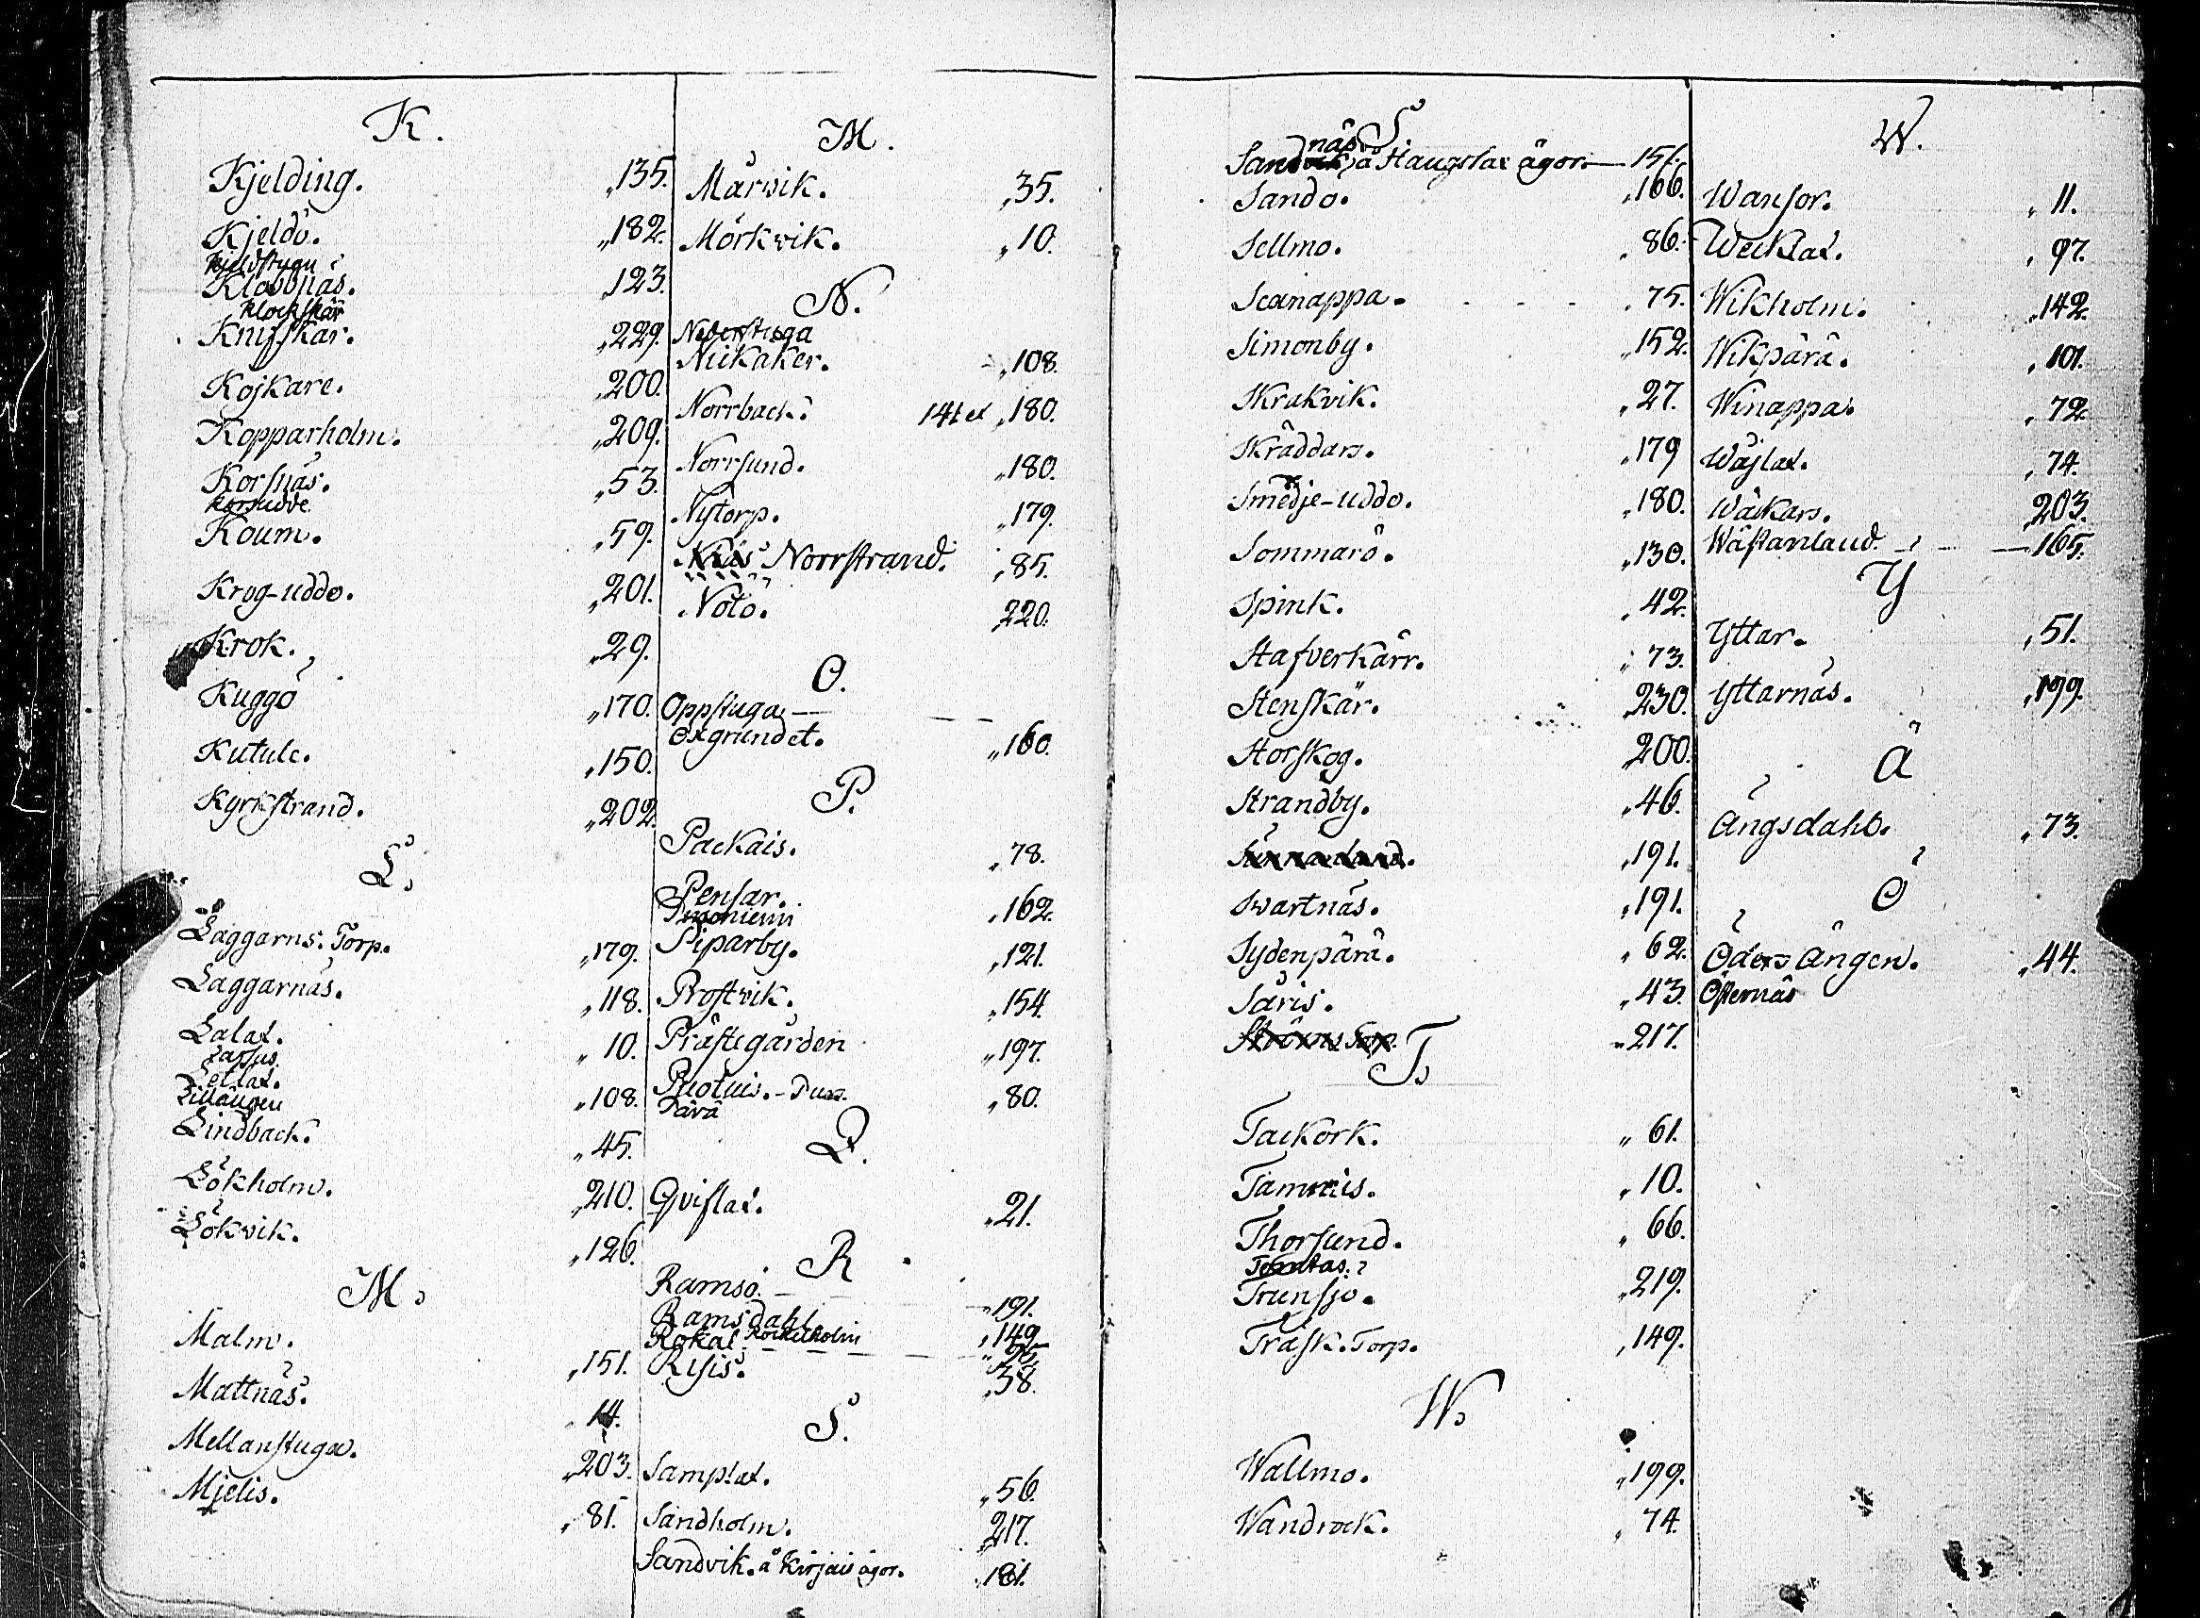 K.
Kjelding. „135.
Kjeldö. „182.
Kjeldstugu
Klobbnäs. 123.
Klockskär
Knifskär. „229.
Kojkare. „200.
Kopparholm. „209.
Korsnäs. „53.
Korsudde
Koum. „59.
Krog-udde. „201.
Krok. „29.
Kuggö „170.
Kutule. „150.
Kyrkstrand. „202.
L.
Laggarns. Torp. „179.
Laggarnäs. „118.
Lalax. „10.
Larsus
Letlax. „108.
Lillängen
Lindback. „45.
Lökholm. „210.
Lökvik. „126.
M.
Malm. „151.
Mattnäs. 14.
Mellanstuga. „203.
Mjelis. „81.
M.
Märvik. „35.
Mörkvik. „10.
N.
Nederstuga
Nickaker. „108.
Norrback. 141 et „180.
Norrsund. „180.
Nytorp. „179.
Norrstrand. „85.
Nötö. 220.
O.
Oppstuga —
Oxgrundet. „160.
P.
Packais. „78.
Pensar. „162.
Piparby. „121.
Prostvik. „154.
Prästegården „197.
Puotuis. „80.
Pärä
Q.
Qvislax. „21.
R
Ramsö. „191.
Ramsdahl „149.
Rokal Rockelholm
Risis. „38.
S.
Samplax. „56.
Sandholm. 217.
Sandvik. å Kirjais ägor. „181.
S
Sandnäs å Haugslax ägor. — 151.
Sandö. „166.
Sellmo. „86.
Scanappa. „75.
Simonby. „152.
Skrakvik. „27.
Skräddars. „179
Smedje-udde. „180.
Sommarö. „130.
Spink. „42.
Stafverkärr. „73.
Stenskär. 230.
Storskog. 200.
Strandby. „46.
Sunnanland. „191.
Swartnäs. „191.
Sydenpärä. „62.
Säris. „43.
Ströms Torp. „217.
T.
Tackork. „61.
Tammis. „10.
Thorsund. „66.
Tomtas.
Trunsjö. „219.
Träsk. Torp. „149.
W.
Wallmo. „199.
Wandrock. „74.
W.
Wansor. „11.
Wecklax. „97.
Wikholm. „142.
Wikpärä. „101.
Winappa. „72.
Wäjlax. „74.
Wäkars. 203.
Wästanland. — 165.
Y
Yttar. „51.
Yttarnäs. „199.
Ä
Ängsdahl. „73.
Ö
Öders Ängen. „44.
Östernäs